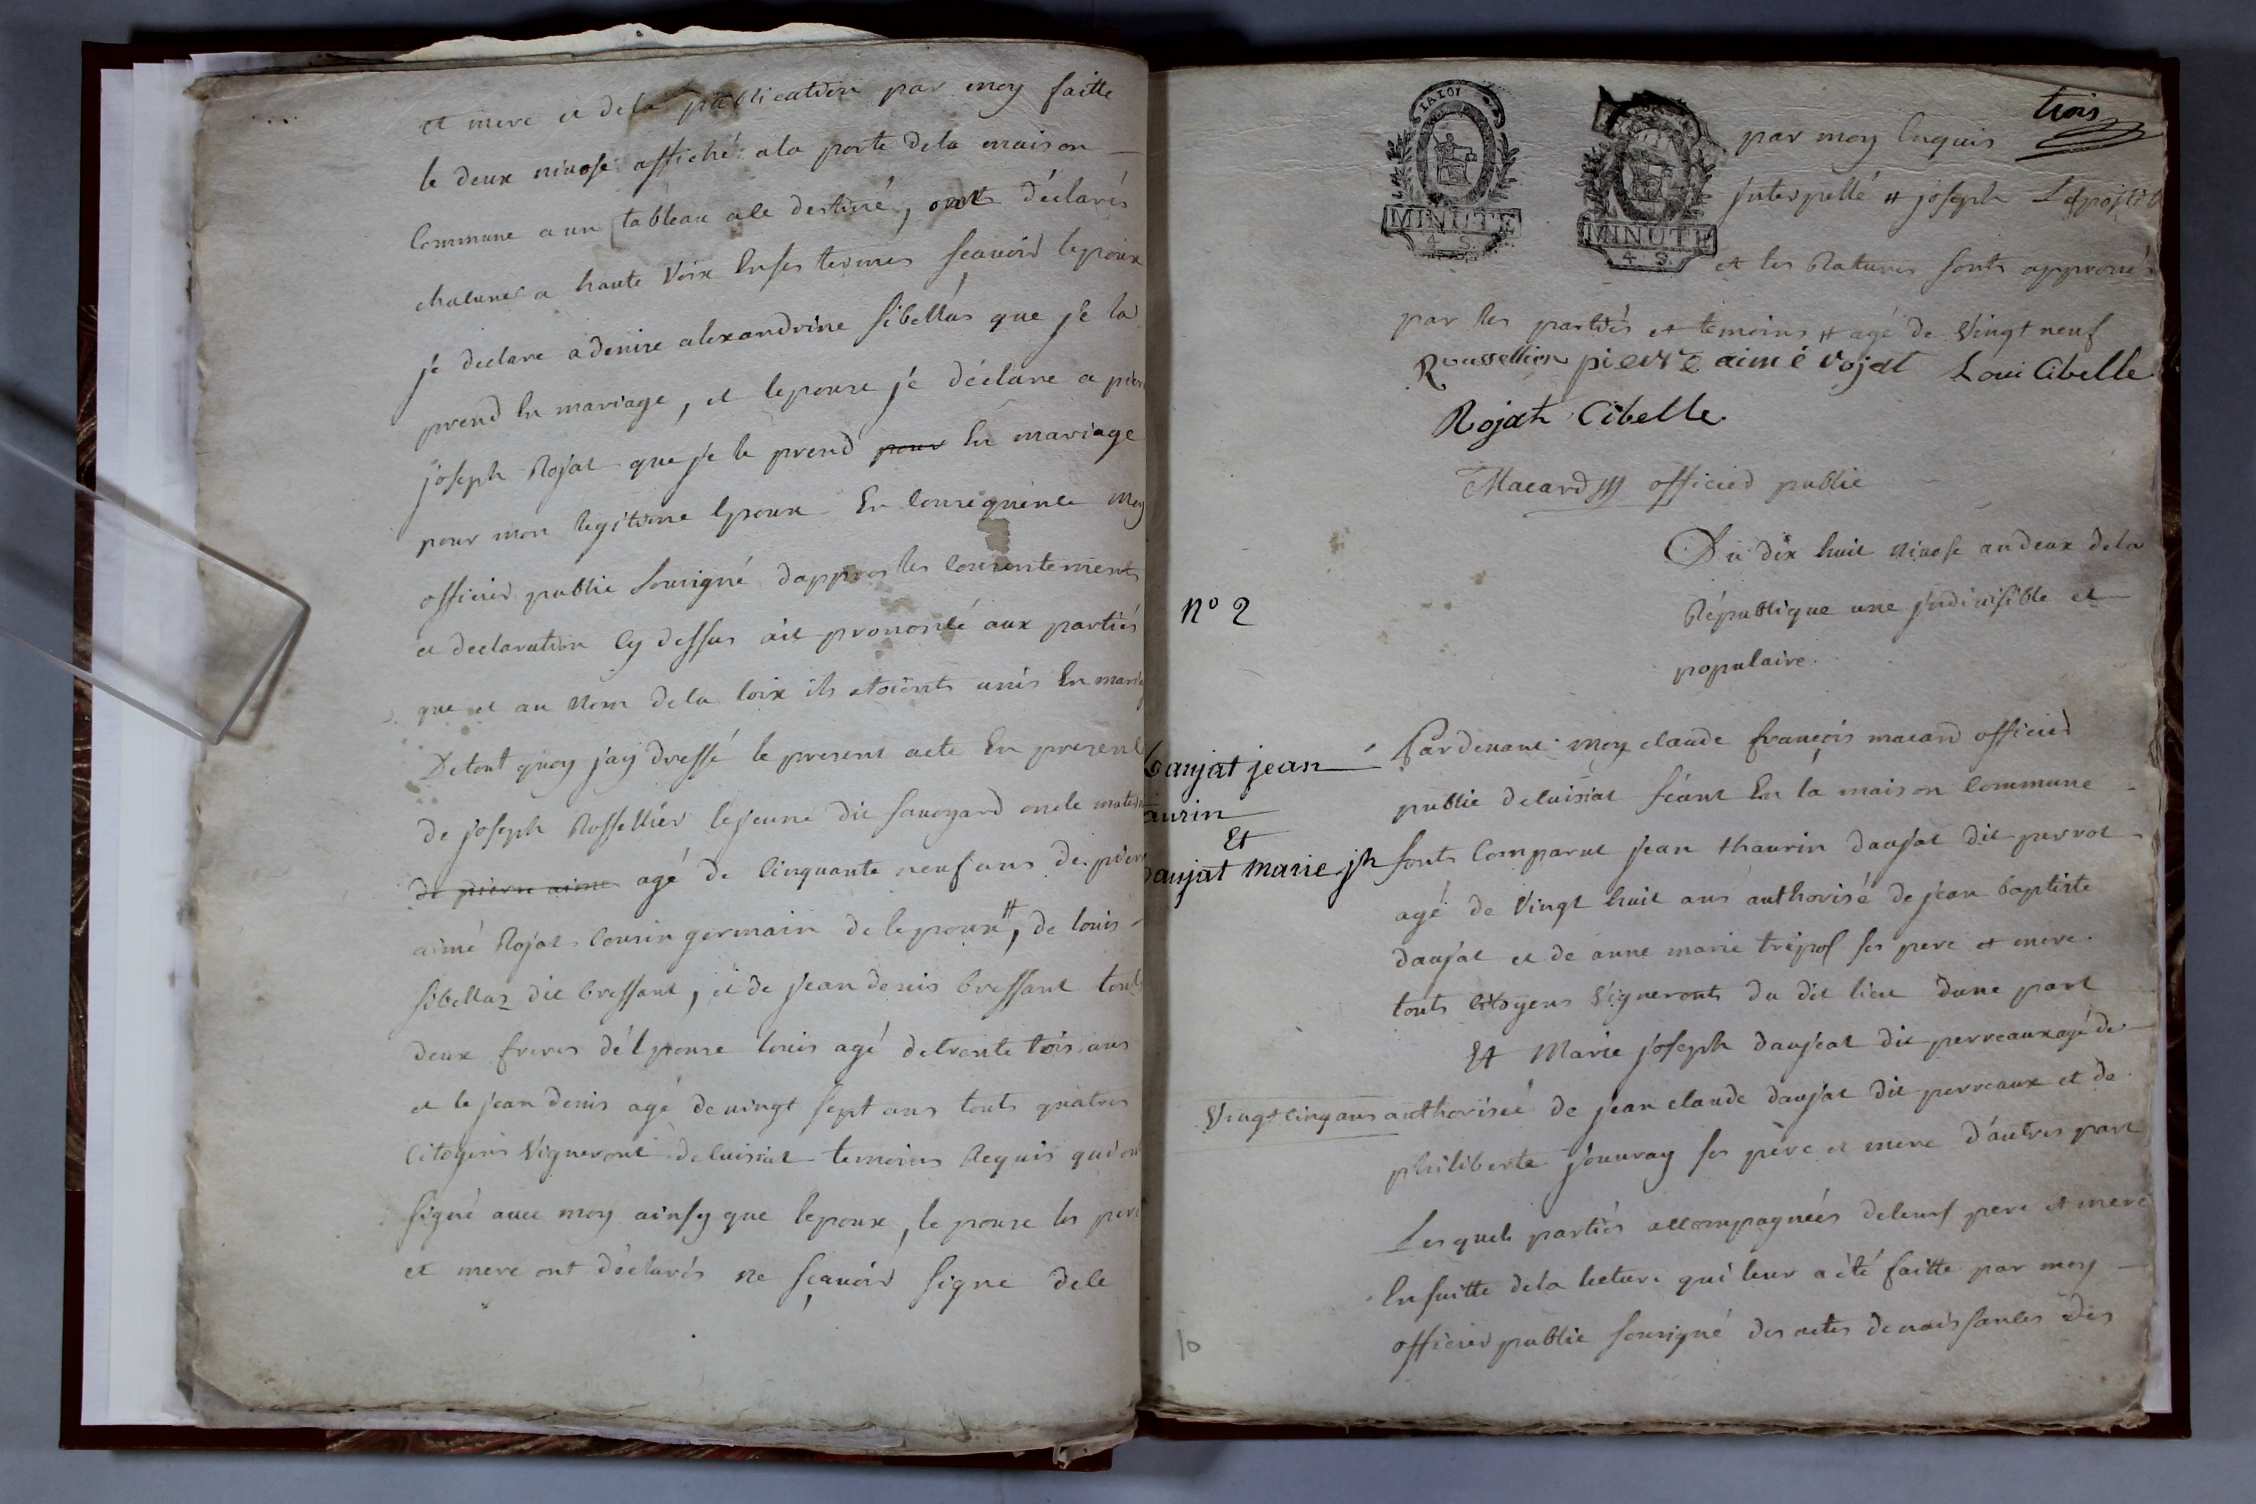 et mere et dela publication par moy faitte
le deux nivose affiché ala porte dela maison
Commune a un tableau ale destiné, ont déclarés
chacune a haute voix En ses termes scavoir lepoux
je declare a denise alexandrine sibellas que je la
prend En mariage, et lepouse je déclare a pierre
joseph Rojat que je le prend pour En mariage
pour mon legitime Epoux En Consequence Moy
officier public Sousigné dappres les Consentements
et declaration Cy dessus ait prononcé aux partiés
que et au Nom dela loix ils etoients unis En maria
Detout quoy jay dressé le present acte En presence
de joseph Rossellier lejeune dit savoyard oncle matern
de pierre aimé agé de Cinquante neuf ans de pierre
aimé Rojat Cousin germain de lepoux #, de louis
sibellas dit bressant, et de jean denis bressant touts
deux freres dé lepouse louis agé detrente trois ans
et le jean denis agé de vingt sept ans touts quatres
Citoyens Vigneront deluisiat temoins Requis qui ont
signé avec moy ainsy que lepoux, lepouse les pere
et mere ont déclarés ne scavoir signe dele
trois
par moy Enquis
Interpellé # joseph
et les Ratures sonts approuvés
MINUTE
4. S.
MINUTE
4. S.
par les partiés et temoins # agé de Vingt neuf
Roussellier pierre aimé rojat Loui Cibelle
Rojat Cibelle
Macard officier public
Du dix huit nivose an deux dela
République une indivisible et
populaire.
N° 2
Danjat jean
taurin
Et
Danjat Marie jh
Pardevant moy claude françois macard officier
public deluisiat séant En la maison Commune
sonts Comparut jean thaurin danjat dit perrot
agé de Vingt huit ans authorisé de jean baptiste
danjat et de anne marie tripos ses pere et mere
touts Citoyens Vigneronts du dit lieu dune part
Et Marie joseph danjeat dit perreaux agé de
Vingt cinq ans authorisée de jean claude danjat dit perreaux et de
philiberte jouvray ses père et mere d'autres part
Lesquels partiés accompagnées deleurs pere et mere
Ensuitte dela lecture qui leur a été faitte par moy
officier public Sousigné des actes de naissances des
10